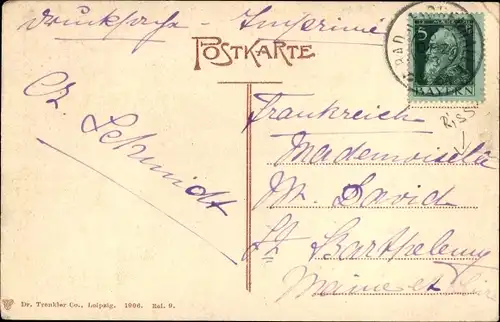 Drucksache - Imprimé
POSTKARTE
5
BAD
BAYERN
Riss
Frankreich
Mademoiselle
M. David
St Barthelemy
Maine et Loire
Ch. Schmidt
Dr. Trenkler Co., Leipzig. 1906. Rsf. 9.